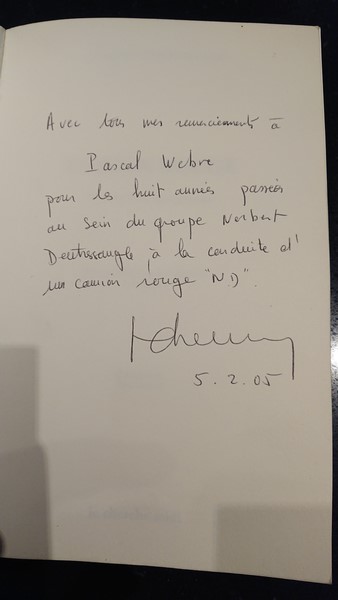 Avec tous mes remerciements à
Pascal Webre
pour les huit années passées
au sein du groupe Norbert
Dentressangle à la conduite d'
un camion rouge "ND".
5.2.05